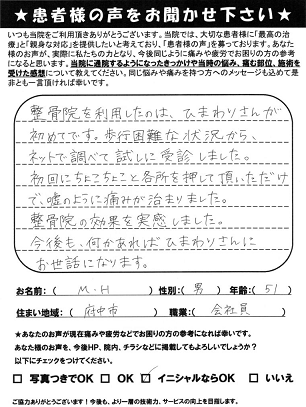 ★患者様の声をお聞かせ下さい★
いつも当院をご利用頂きありがとうございます。当院では、大切な患者様に「最高の治
療」と「親身な対応」を提供したいと考えており、「患者様の声」を募っております。あなた
様のお声が、実際に私たちの力となり、今後同じように痛みや疲労でお困りの方の参考
になると思います。当院に通院するようになったきっかけや当時の悩み、痛む部位、施術を
受けた感想について教えてください。同じ悩みや痛みを持つ方へのメッセージも込めて是
非とも一言頂ければ幸いです。
整骨院を利用したのは、ひまわりさんが
初めてです。歩行困難な状況から、
ネットで調べて試しに受診しました。
初回にちょこちょこと各所を押して頂いただけ
で、嘘のように痛みが治まりました。
整骨院の効果を実感しました。
今後も、何かあればひまわりさんに
お世話になります。
お名前：（ M・H ）性別：（ 男 ）年齢：（ 51 ）
住まい地域：（ 府中市 ）職業：（ 会社員 ）
★あなたのお声が現在痛みや疲労などでお困りの方の参考になれば幸いです。
あなた様のお声を、今後HP、院内、チラシなどに掲載してもよろしいでしょうか？
以下にチェックをつけてください。
□ 写真つきでOK □ OK ☑ イニシャルならOK □ いいえ
ご協力ありがとうございます！今後も、より一層の技術力、サービスの向上を目指します。